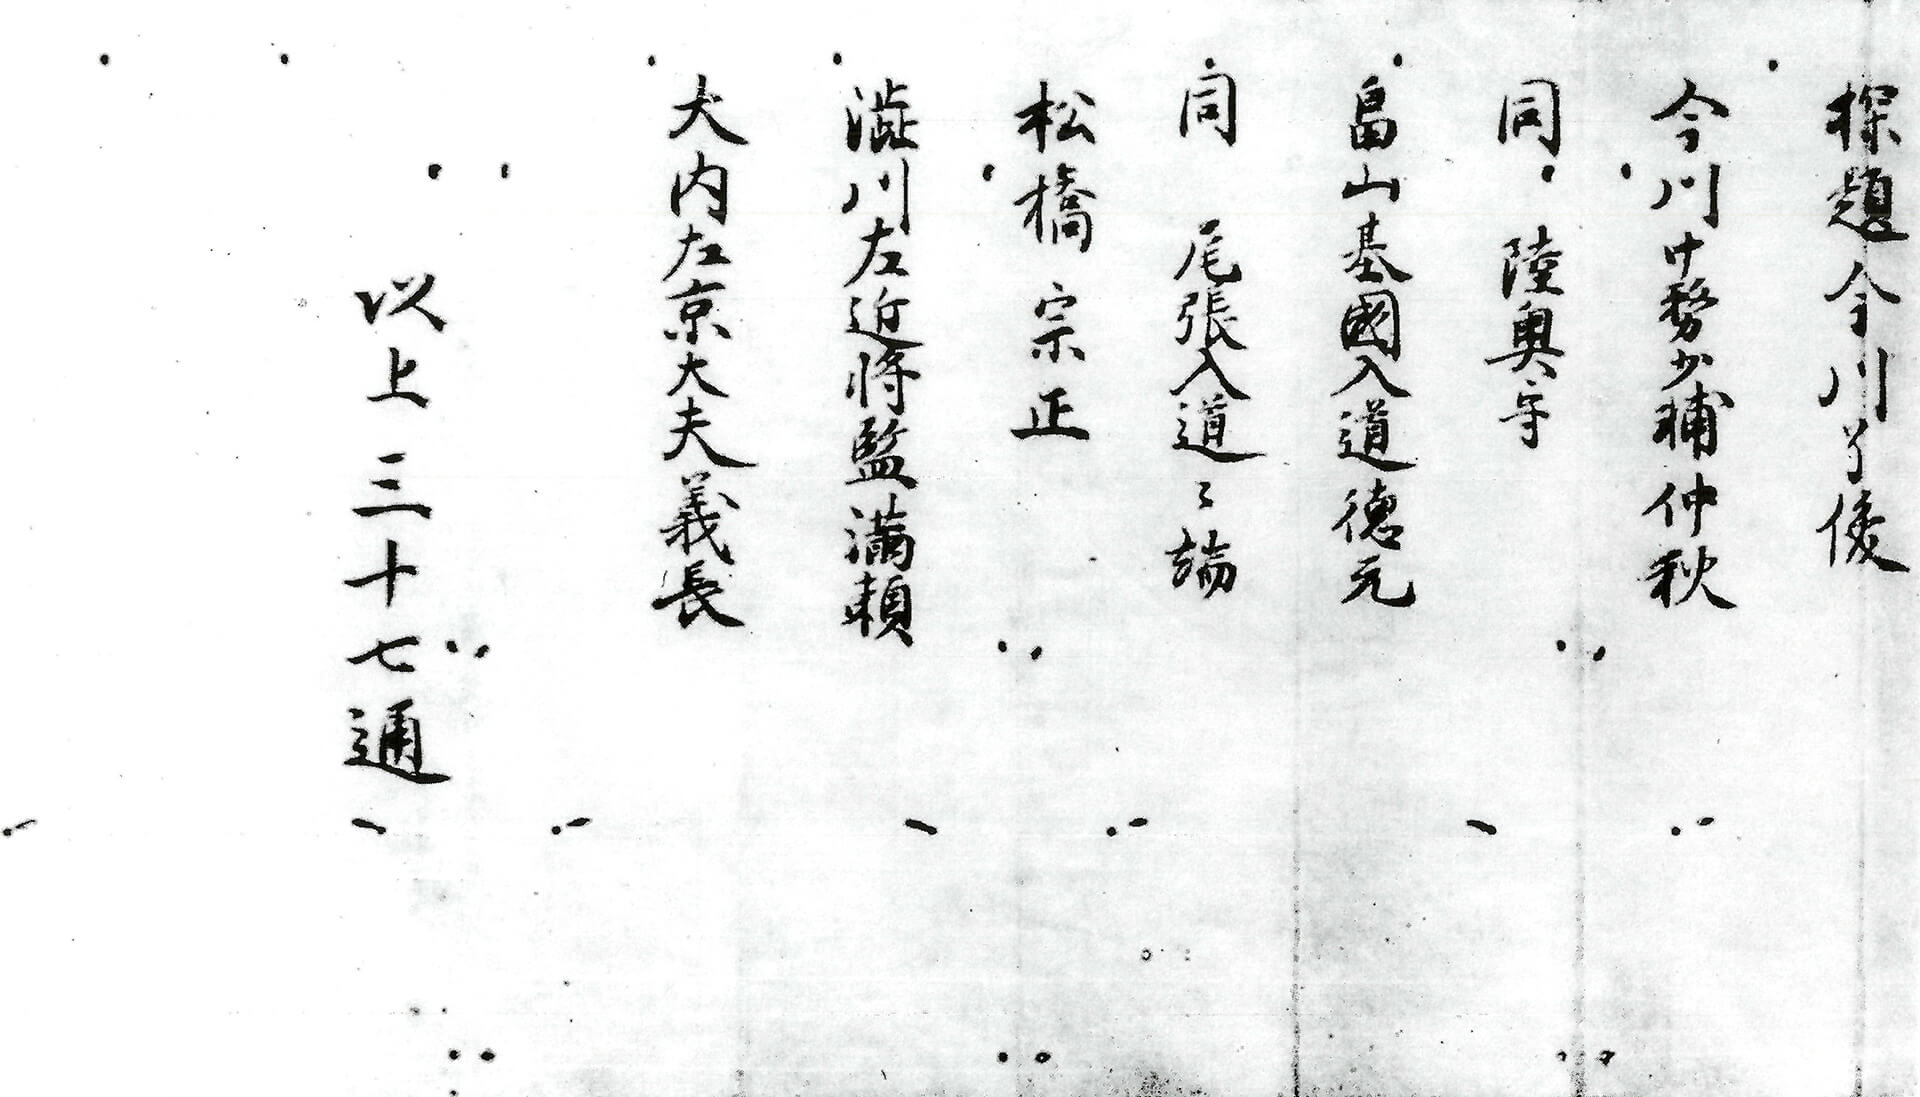 探題今川了俊
今川中務少輔仲秋
同 陸奥守
畠山基國入道徳元
同 尾張入道〻端
松橋宗正
澁川左近将監満頼
大内左京大夫義長
以上三十七通